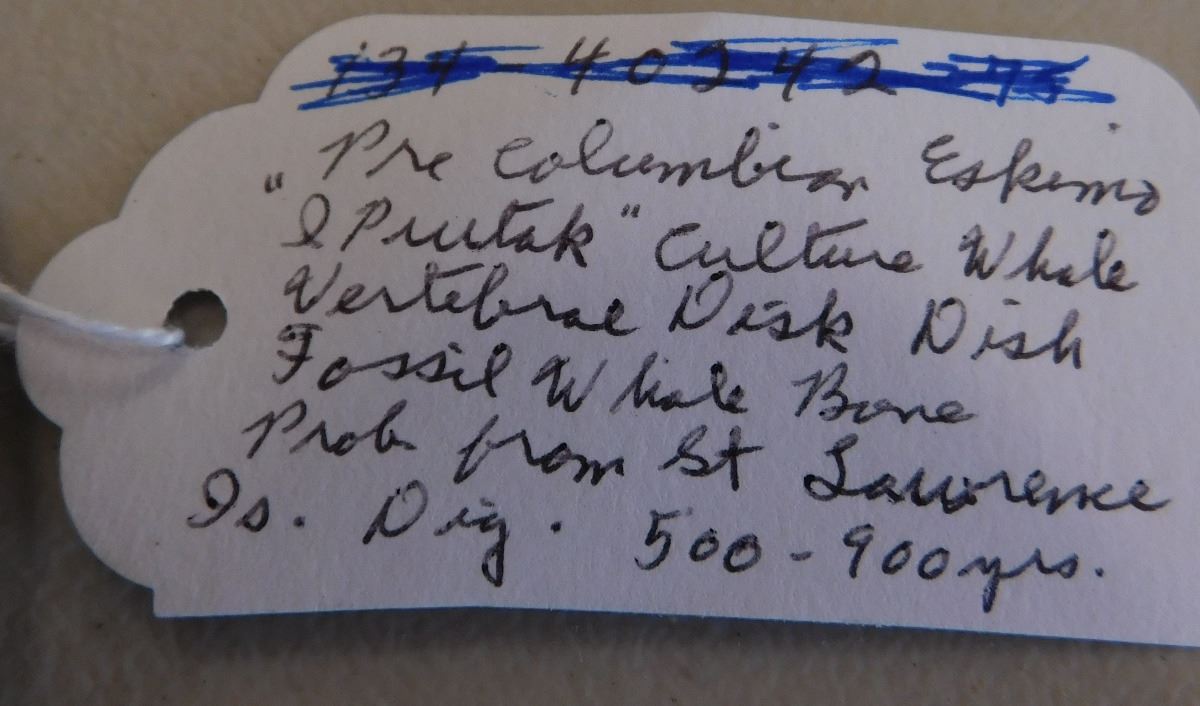 134-40242-75
Pre Columbian Eskimo
"I Piutak" Culture Whale
Vertebrae Disk Dish
Fossil Whale Bone
Prob from St Lawrence
Is. Dig. 500-900 yrs.